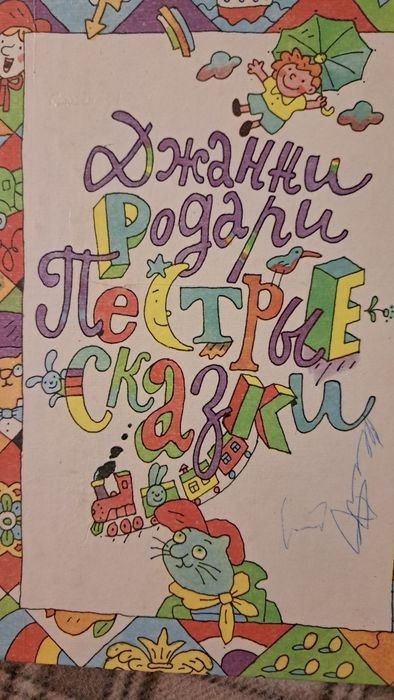 Джанни
Родари
Пёстрые
сказки